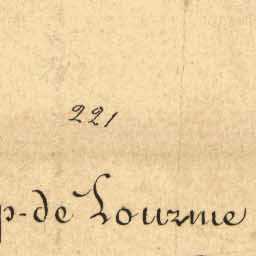 221
p-de Lourme